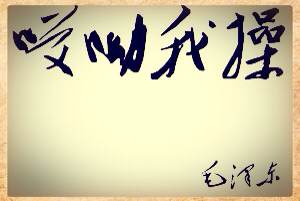 哎呦我操
毛泽东